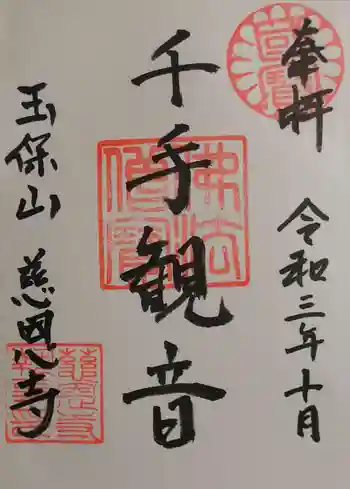 奉拝
令和三年十月
千手観音
玉保山 慈恩寺
佛法僧寳